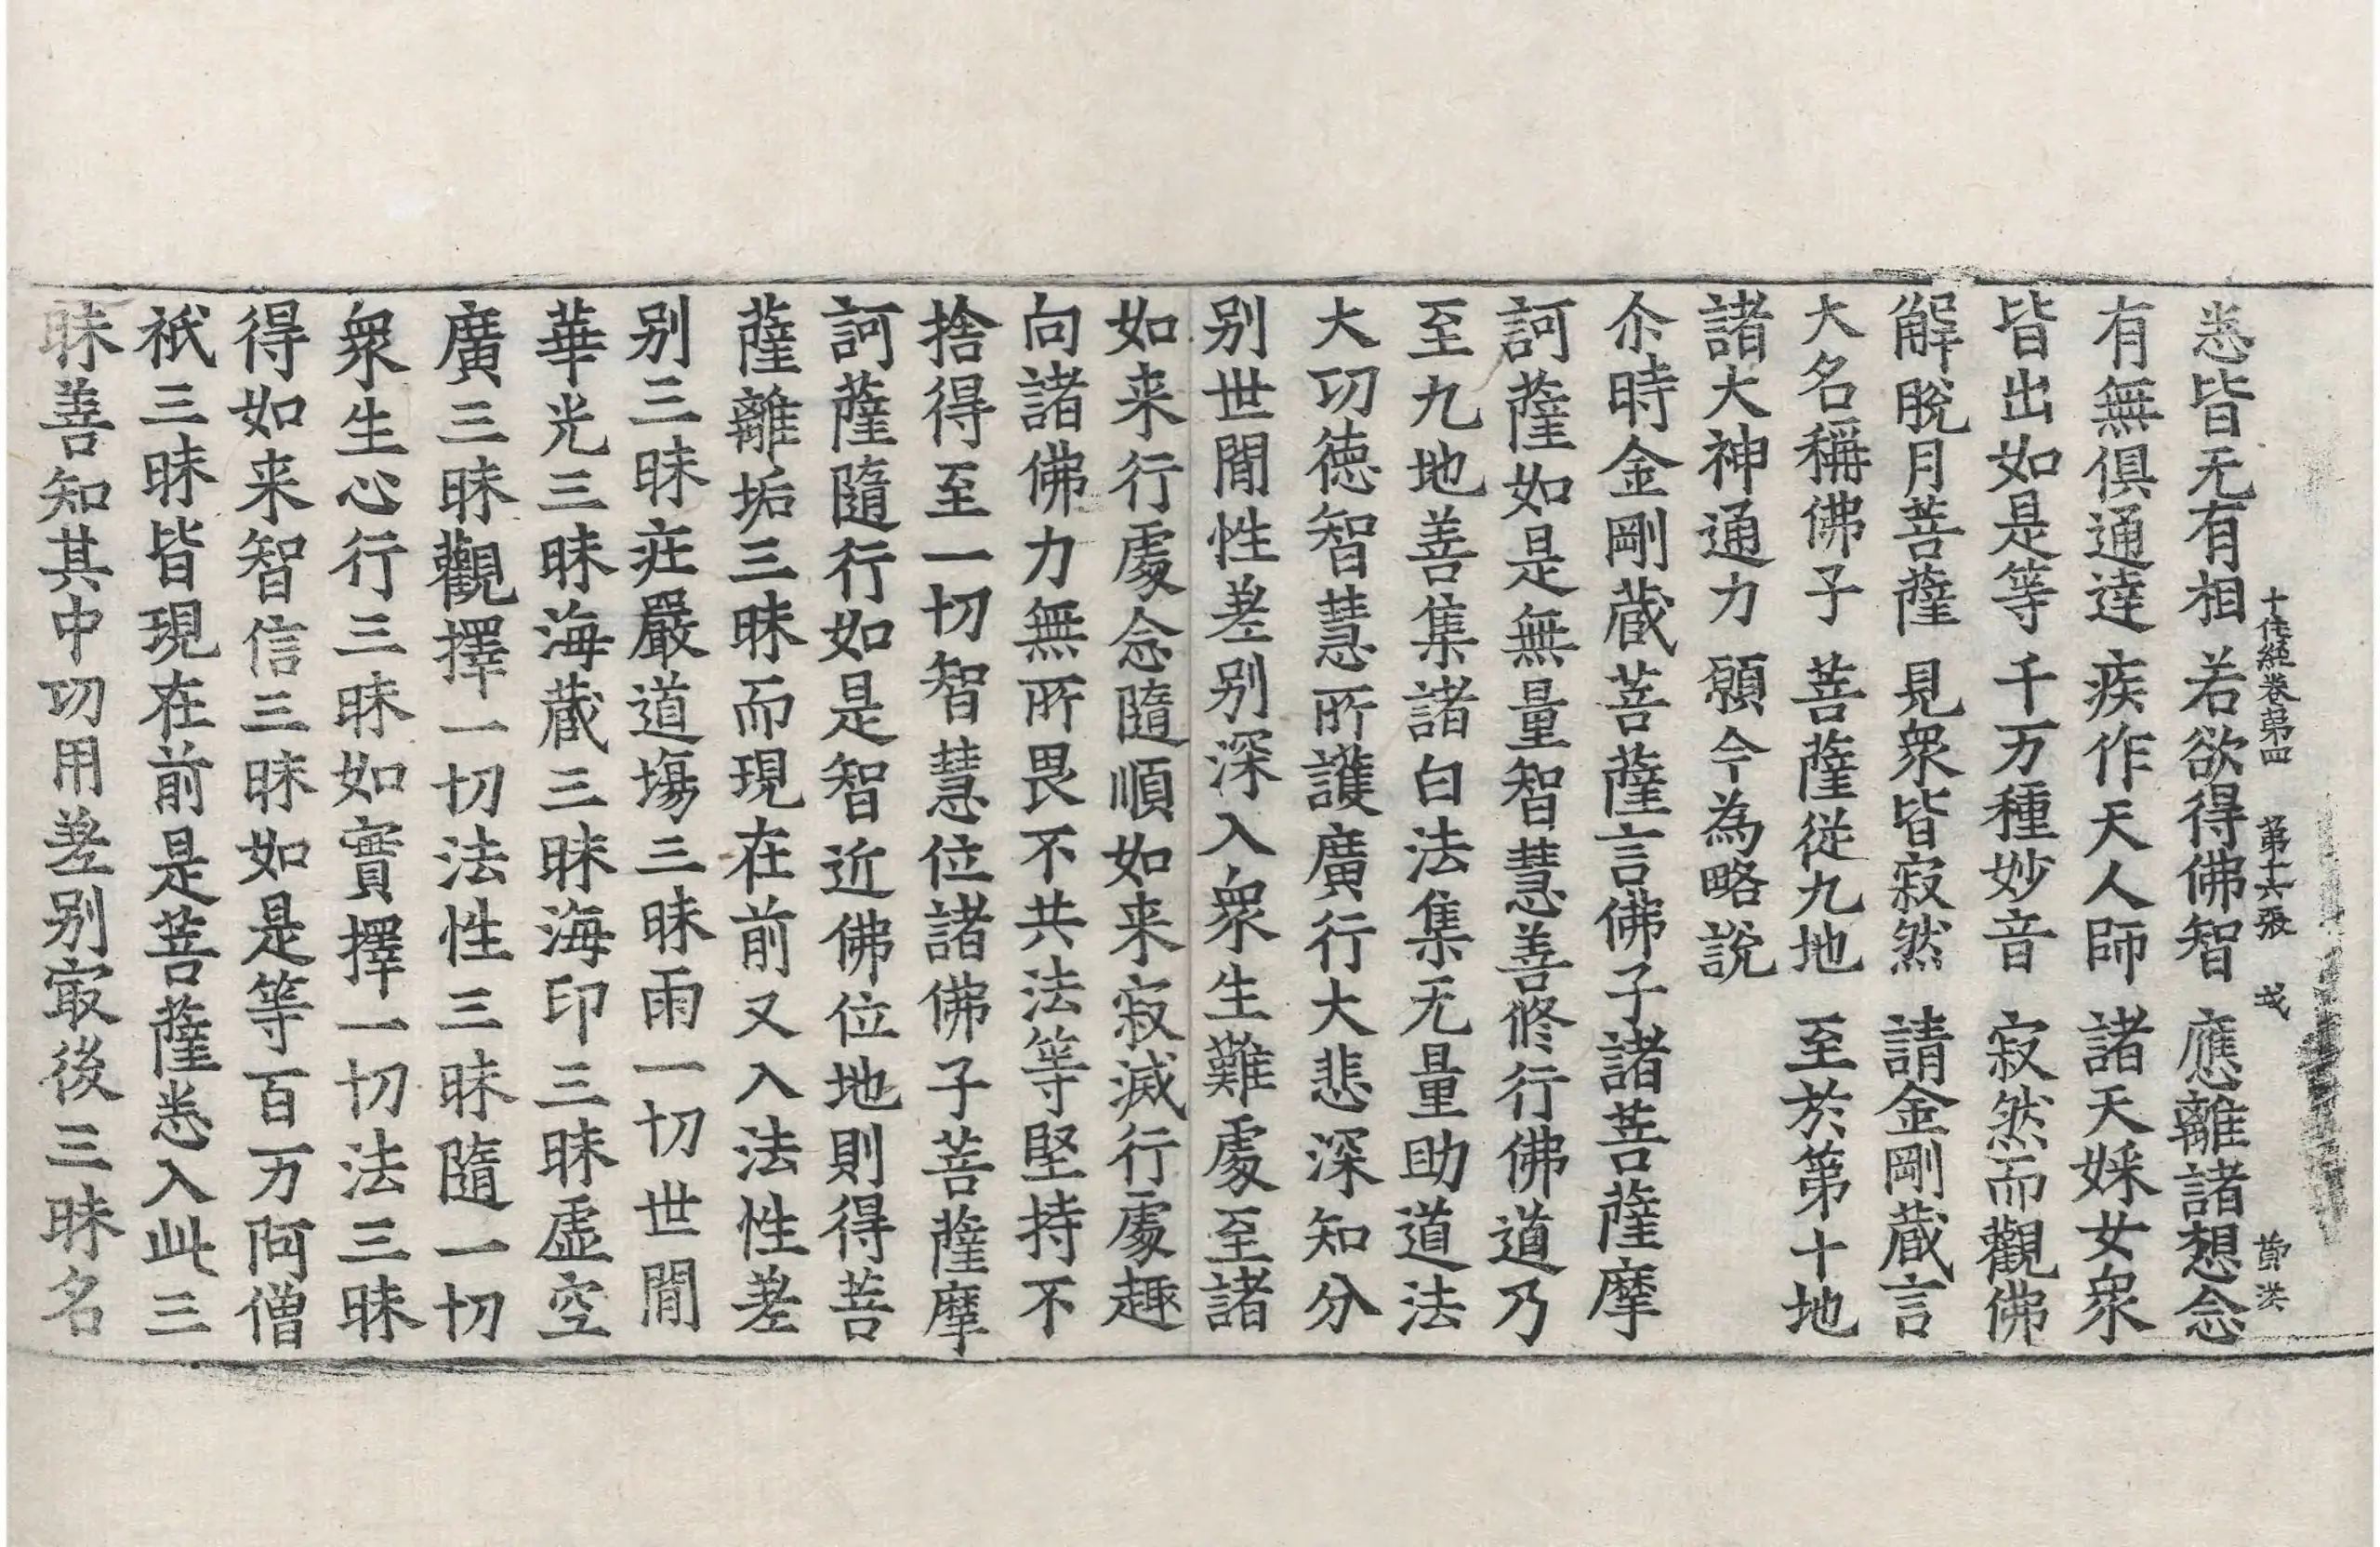 十住経卷苐四 第十六張 㦯
悉皆无有相 若欲得佛智 應離諸想念
有無俱通達 疾作天人師 諸天婇女衆
皆出如是等 千万種妙音 寂然而觀佛
解脫月菩薩 見衆皆寂然 請金剛蔵言
大名稱佛子 菩薩従九地 至於第十地
諸大神通力 願今為略說
尒時金剛蔵菩薩言佛子諸菩薩摩
訶薩如是無量智慧善修行佛道乃
至九地善集諸白法集无量助道法
大功徳智慧所護廣行大悲深知分
别世間性差别深入衆生難處至諸
如来行處念隨順如来寂滅行處趣
向諸佛力無所畏不共法等堅持不
捨得至一切智慧位諸佛子菩薩摩
訶薩隨行如是智近佛位地則得菩
薩離垢三昧而現在前又入法性差
别三昧莊嚴道場三昧雨一切世間
華光三昧海蔵三昧海印三昧虛空
廣三昧觀擇一切法性三昧隨一切
衆生心行三昧如實擇一切法三昧
得如来智信三昧如是等百万阿僧
祇三昧皆現在前是菩薩悉入此三
昧善知其中功用差别㝡後三昧名